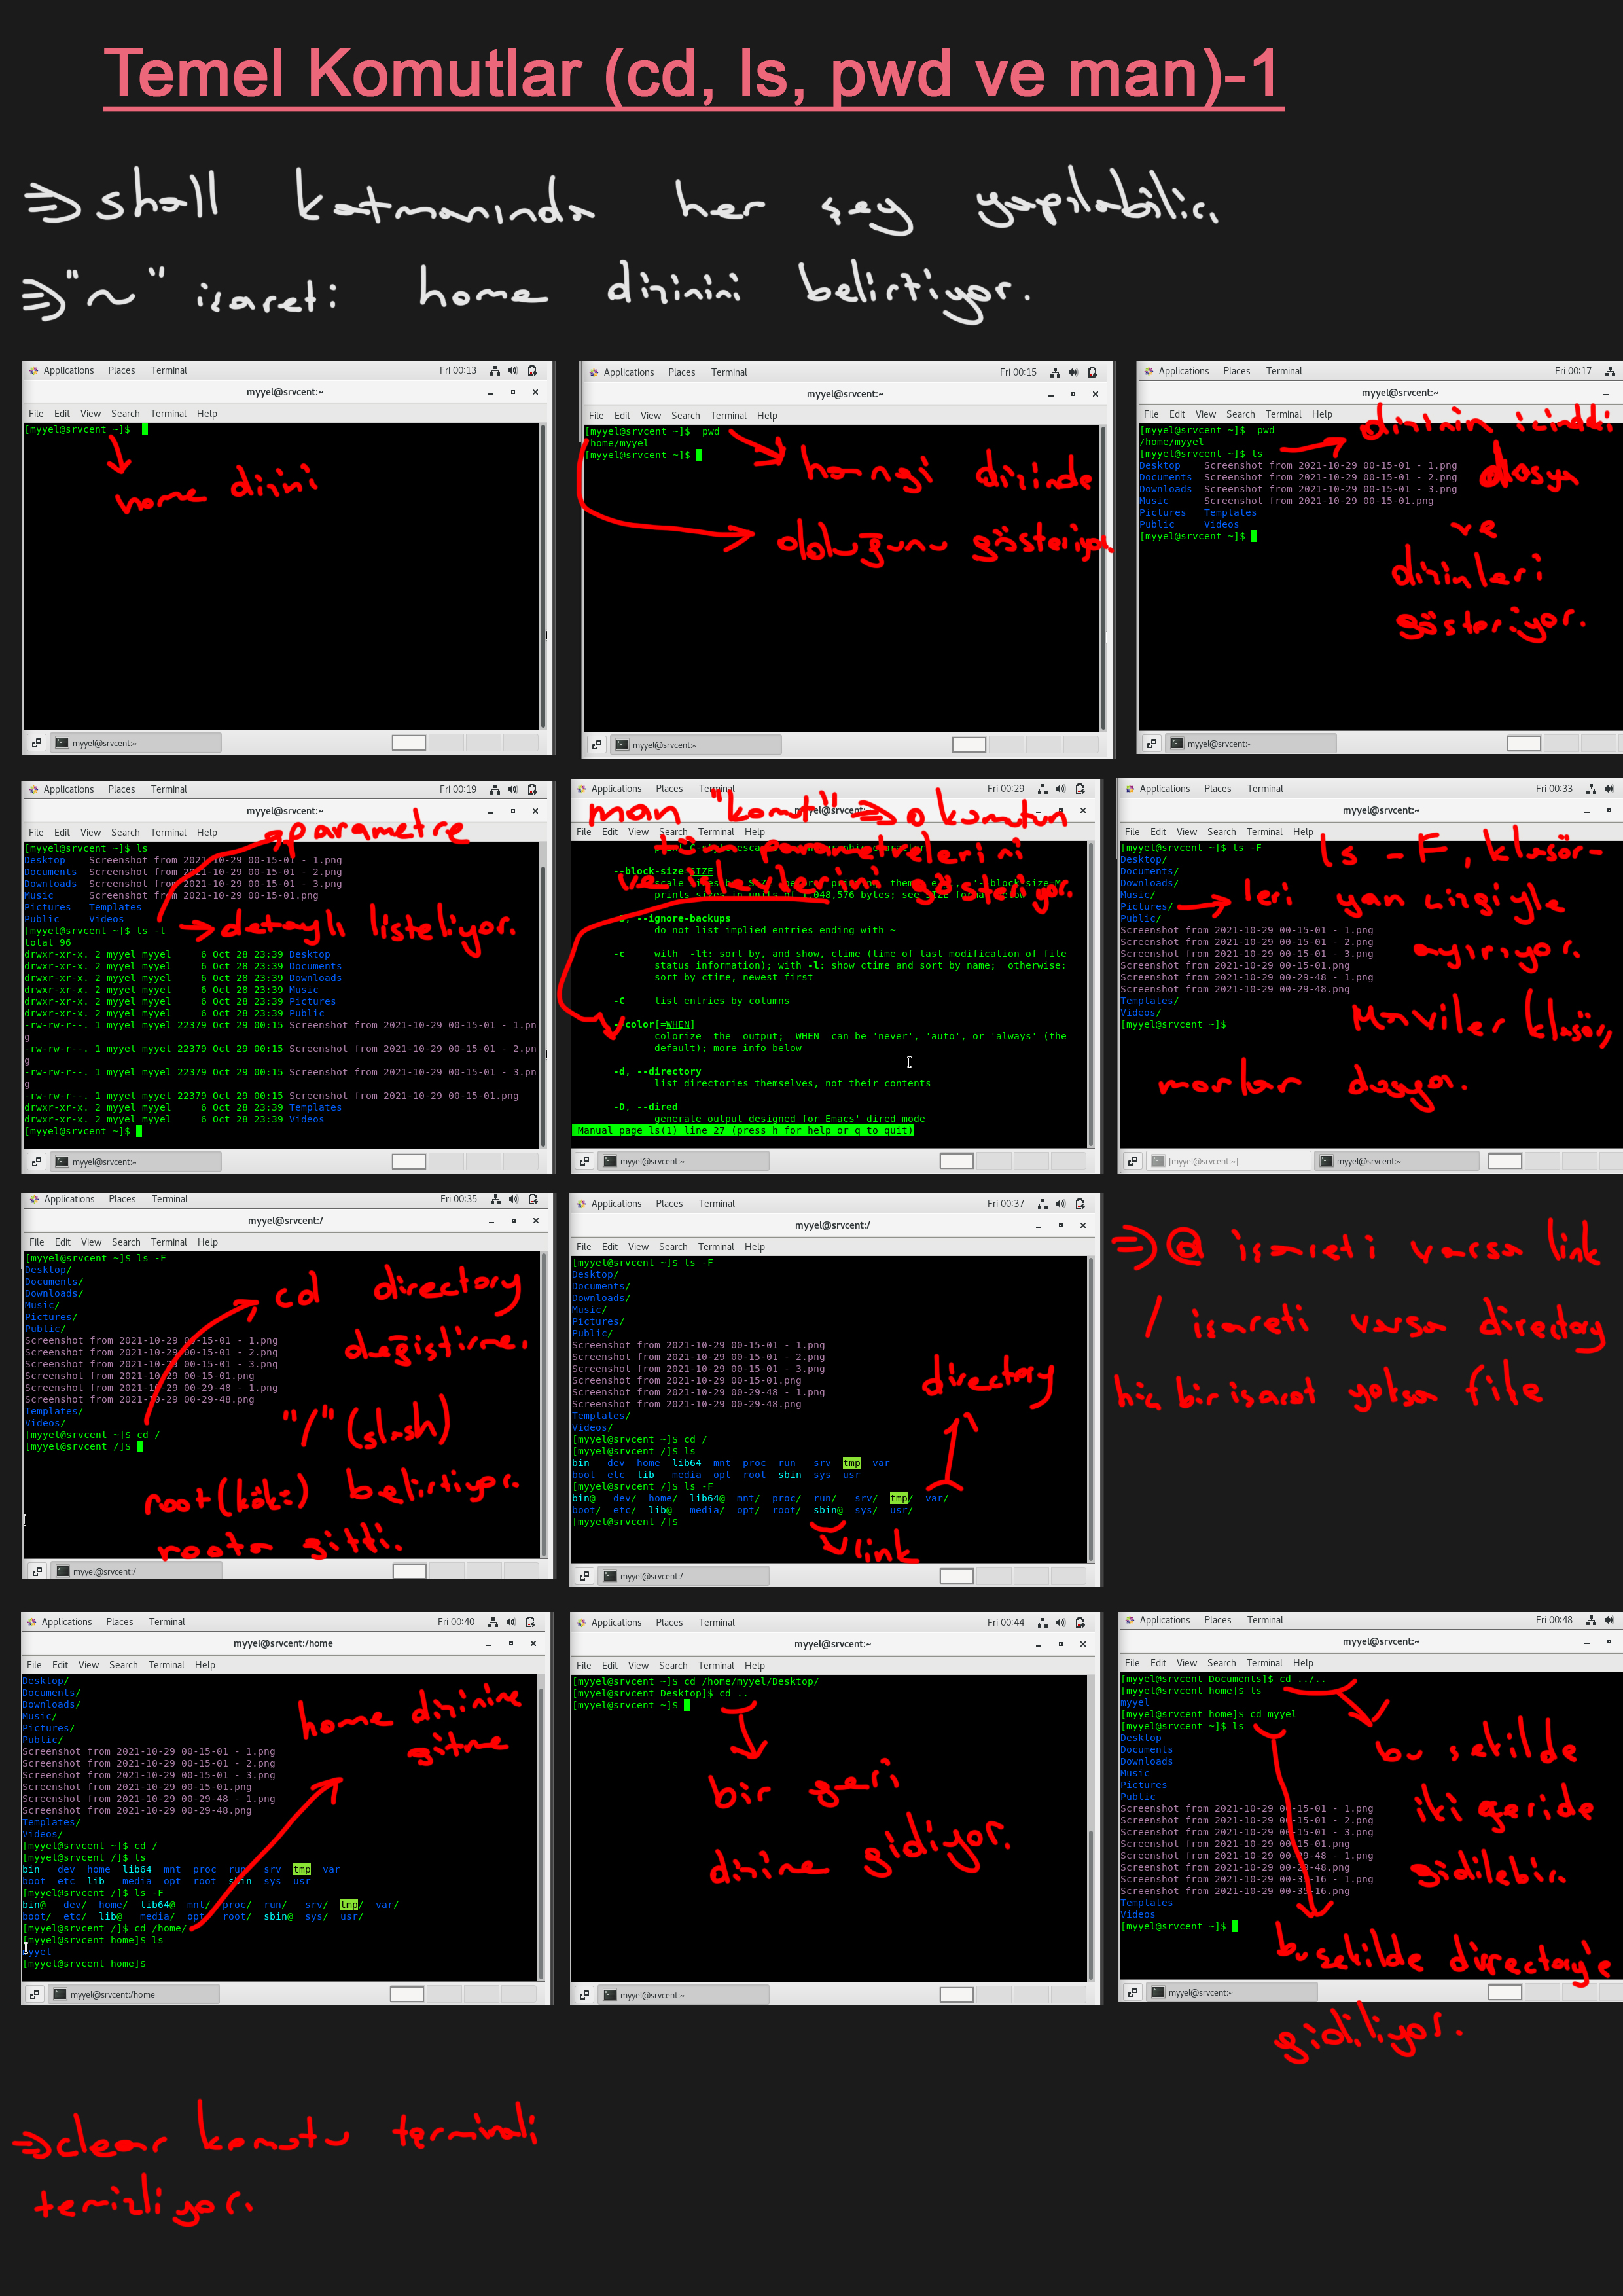 Temel Komutlar (cd, ls, pwd ve man)-1
⇒ shell katmanında her şey yapılabilir.
⇒ "~" işareti: home dizinini belirtiyor.
Applications Places Terminal Fri 00:13
myyel@srvcent:~
File Edit View Search Terminal Help
[myyel@srvcent ~]$
home dizini
myyel@srvcent:~
Applications Places Terminal Fri 00:15
myyel@srvcent:~
File Edit View Search Terminal Help
[myyel@srvcent ~]$ pwd
/home/myyel
[myyel@srvcent ~]$
hangi dizinde
olduğunu gösteriyor.
myyel@srvcent:~
Applications Places Terminal Fri 00:17
myyel@srvcent:~
File Edit View Search Terminal Help
[myyel@srvcent ~]$ pwd
/home/myyel
[myyel@srvcent ~]$ ls
Desktop Screenshot from 2021-10-29 00-15-01 - 1.png
Documents Screenshot from 2021-10-29 00-15-01 - 2.png
Downloads Screenshot from 2021-10-29 00-15-01 - 3.png
Music Screenshot from 2021-10-29 00-15-01.png
Pictures Templates
Public Videos
[myyel@srvcent ~]$
dizinin
dosya
ve
dizinleri
gösteriyor.
myyel@srvcent:~
Applications Places Terminal Fri 00:19
myyel@srvcent:~
File Edit View Search Terminal Help
parametre
[myyel@srvcent ~]$ ls
Desktop Screenshot from 2021-10-29 00-15-01 - 1.png
Documents Screenshot from 2021-10-29 00-15-01 - 2.png
Downloads Screenshot from 2021-10-29 00-15-01 - 3.png
Music Screenshot from 2021-10-29 00-15-01.png
Pictures Templates
Public Videos
[myyel@srvcent ~]$ ls -l
detaylı listeliyor.
total 96
drwxr-xr-x. 2 myyel myyel 6 Oct 28 23:39 Desktop
drwxr-xr-x. 2 myyel myyel 6 Oct 28 23:39 Documents
drwxr-xr-x. 2 myyel myyel 6 Oct 28 23:39 Downloads
drwxr-xr-x. 2 myyel myyel 6 Oct 28 23:39 Music
drwxr-xr-x. 2 myyel myyel 6 Oct 28 23:39 Pictures
drwxr-xr-x. 2 myyel myyel 6 Oct 28 23:39 Public
-rw-rw-r--. 1 myyel myyel 22379 Oct 29 00:15 Screenshot from 2021-10-29 00-15-01 - 1.pn
g
-rw-rw-r--. 1 myyel myyel 22379 Oct 29 00:15 Screenshot from 2021-10-29 00-15-01 - 2.pn
g
-rw-rw-r--. 1 myyel myyel 22379 Oct 29 00:15 Screenshot from 2021-10-29 00-15-01 - 3.pn
g
-rw-rw-r--. 1 myyel myyel 22379 Oct 29 00:15 Screenshot from 2021-10-29 00-15-01.png
drwxr-xr-x. 2 myyel myyel 6 Oct 28 23:39 Templates
drwxr-xr-x. 2 myyel myyel 6 Oct 28 23:39 Videos
[myyel@srvcent ~]$
myyel@srvcent:~
Applications Places Terminal Fri 00:29
man "komut" ⇒ o komutun
File Edit View Search Terminal Help
tüm parametrelerini
--block-size=SIZE
ve işlevlerini gösteriyor.
-B, --ignore-backups
do not list implied entries ending with ~
-c with -lt: sort by, and show, ctime (time of last modification of file
status information); with -l: show ctime and sort by name; otherwise:
sort by ctime, newest first
-C list entries by columns
--color[=WHEN]
colorize the output; WHEN can be 'never', 'auto', or 'always' (the
default); more info below
-d, --directory
list directories themselves, not their contents
-D, --dired
generate output designed for Emacs' dired mode
Manual page ls(1) line 27 (press h for help or q to quit)
myyel@srvcent:~
Applications Places Terminal Fri 00:33
myyel@srvcent:~
File Edit View Search Terminal Help
[myyel@srvcent ~]$ ls -F
Desktop/
Documents/
Downloads/
Music/
Pictures/
Public/
Screenshot from 2021-10-29 00-15-01 - 1.png
Screenshot from 2021-10-29 00-15-01 - 2.png
Screenshot from 2021-10-29 00-15-01 - 3.png
Screenshot from 2021-10-29 00-15-01.png
Screenshot from 2021-10-29 00-29-48 - 1.png
Screenshot from 2021-10-29 00-29-48.png
Templates/
Videos/
[myyel@srvcent ~]$
ls -F, klasör-
leri yan çizgiyle
ayırıyor.
Maviler klasör,
morlar dosya.
[myyel@srvcent:~] myyel@srvcent:~
Applications Places Terminal Fri 00:35
myyel@srvcent:/
File Edit View Search Terminal Help
[myyel@srvcent ~]$ ls -F
Desktop/
Documents/
Downloads/
Music/
Pictures/
Public/
Screenshot from 2021-10-29 00-15-01 - 1.png
Screenshot from 2021-10-29 00-15-01 - 2.png
Screenshot from 2021-10-29 00-15-01 - 3.png
Screenshot from 2021-10-29 00-15-01.png
Screenshot from 2021-10-29 00-29-48 - 1.png
Screenshot from 2021-10-29 00-29-48.png
Templates/
Videos/
[myyel@srvcent ~]$ cd /
[myyel@srvcent /]$
cd directory
değiştirme.
"/" (slash)
root(kökü) belirtiyor.
roota gitti.
myyel@srvcent:/
Applications Places Terminal Fri 00:37
myyel@srvcent:/
File Edit View Search Terminal Help
[myyel@srvcent ~]$ ls -F
Desktop/
Documents/
Downloads/
Music/
Pictures/
Public/
Screenshot from 2021-10-29 00-15-01 - 1.png
Screenshot from 2021-10-29 00-15-01 - 2.png
Screenshot from 2021-10-29 00-15-01 - 3.png
Screenshot from 2021-10-29 00-15-01.png
Screenshot from 2021-10-29 00-29-48 - 1.png
Screenshot from 2021-10-29 00-29-48.png
Templates/
Videos/
[myyel@srvcent ~]$ cd /
[myyel@srvcent /]$ ls
bin dev home lib64 mnt proc run srv tmp var
boot etc lib media opt root sbin sys usr
[myyel@srvcent /]$ ls -F
bin@ dev/ home/ lib64@ mnt/ proc/ run/ srv/ tmp/ var/
boot/ etc/ lib@ media/ opt/ root/ sbin@ sys/ usr/
[myyel@srvcent /]$
directory
link
myyel@srvcent:/
⇒ @ işareti varsa link
/ işareti varsa directory
hiç bir işaret yoksa file
Applications Places Terminal Fri 00:40
myyel@srvcent:/home
File Edit View Search Terminal Help
Desktop/
Documents/
Downloads/
Music/
Pictures/
Public/
Screenshot from 2021-10-29 00-15-01 - 1.png
Screenshot from 2021-10-29 00-15-01 - 2.png
Screenshot from 2021-10-29 00-15-01 - 3.png
Screenshot from 2021-10-29 00-15-01.png
Screenshot from 2021-10-29 00-29-48 - 1.png
Screenshot from 2021-10-29 00-29-48.png
Templates/
Videos/
[myyel@srvcent ~]$ cd /
[myyel@srvcent /]$ ls
bin dev home lib64 mnt proc run srv tmp var
boot etc lib media opt root sbin sys usr
[myyel@srvcent /]$ ls -F
bin@ dev/ home/ lib64@ mnt/ proc/ run/ srv/ tmp/ var/
boot/ etc/ lib@ media/ opt/ root/ sbin@ sys/ usr/
[myyel@srvcent /]$ cd /home/
[myyel@srvcent home]$ ls
myyel
[myyel@srvcent home]$
home dizinine
gitme
myyel@srvcent:/home
Applications Places Terminal Fri 00:44
myyel@srvcent:~
File Edit View Search Terminal Help
[myyel@srvcent ~]$ cd /home/myyel/Desktop/
[myyel@srvcent Desktop]$ cd ..
[myyel@srvcent ~]$
bir geri
dizine gidiyor.
myyel@srvcent:~
Applications Places Terminal Fri 00:48
myyel@srvcent:~
File Edit View Search Terminal Help
[myyel@srvcent Documents]$ cd ../..
[myyel@srvcent home]$ ls
myyel
[myyel@srvcent home]$ cd myyel
[myyel@srvcent ~]$ ls
Desktop
Documents
Downloads
Music
Pictures
Public
Screenshot from 2021-10-29 00-15-01 - 1.png
Screenshot from 2021-10-29 00-15-01 - 2.png
Screenshot from 2021-10-29 00-15-01 - 3.png
Screenshot from 2021-10-29 00-15-01.png
Screenshot from 2021-10-29 00-29-48 - 1.png
Screenshot from 2021-10-29 00-29-48.png
Screenshot from 2021-10-29 00-35-16 - 1.png
Screenshot from 2021-10-29 00-35-16.png
Templates
Videos
[myyel@srvcent ~]$
bu şekilde
iki geride
gidilebir.
bu şekilde directory'e
gidiliyor.
myyel@srvcent:~
⇒ clear komutu terminali
temizliyor.